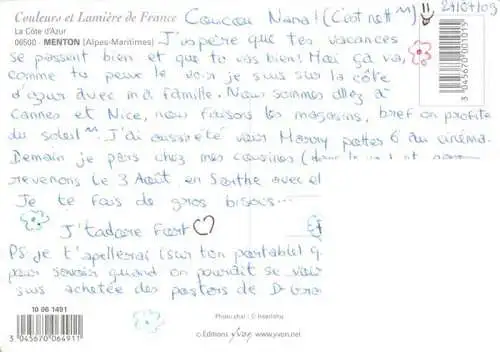 Couleurs et Lumière de France
La Côte d'Azur
06500 - MENTON (Alpes-Maritimes)
Coucou Nana! (C'est nett ^^) 
24/07/09
J'espère que tes vacances
se passent bien et que tu vas bien! Moi ça va,
comme tu peux le voir je suis sur la côte
d'azur avec ma famille. Nous sommes allez à
Cannes et Nice, nous faisons les magasins, bref on profite
du soleil ^^ J'ai aussi été voir Harry potter 6 au cinéma.
Demain je pars chez mes cousines (dans le
revenons le 3 Août en Sarthe avec el
Je te fais de gros bisous...
J'tadore Fort ♡
PS je t'apellerai (sur ton portable) q
pour savoir quand on pourrait se voir
suis achetée des posters de Dr Gre
3 045670 001015
10 06 1491
3 045670 064911
Photo
© Editions yvon www.yvon.net